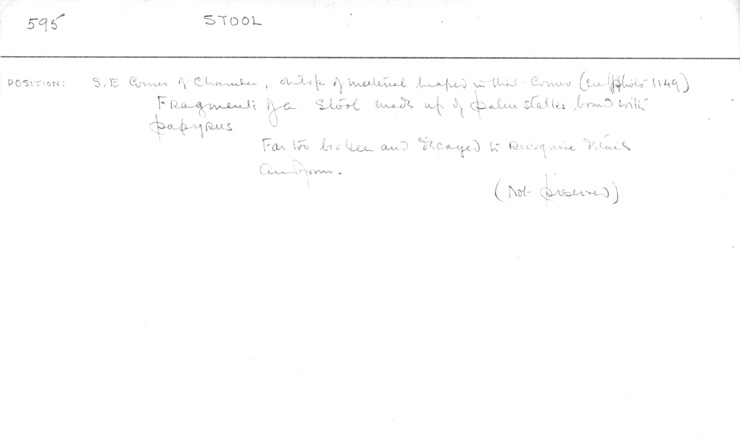 595 STOOL
POSITION: S.E Corner of Chamber, on top of material heaped in that Corner (see photo 1149)
Fragments of a Stool made up of palm stalks bound with
papyrus
Far too broken and decayed to recognise detail
and form.
(Not preserved)